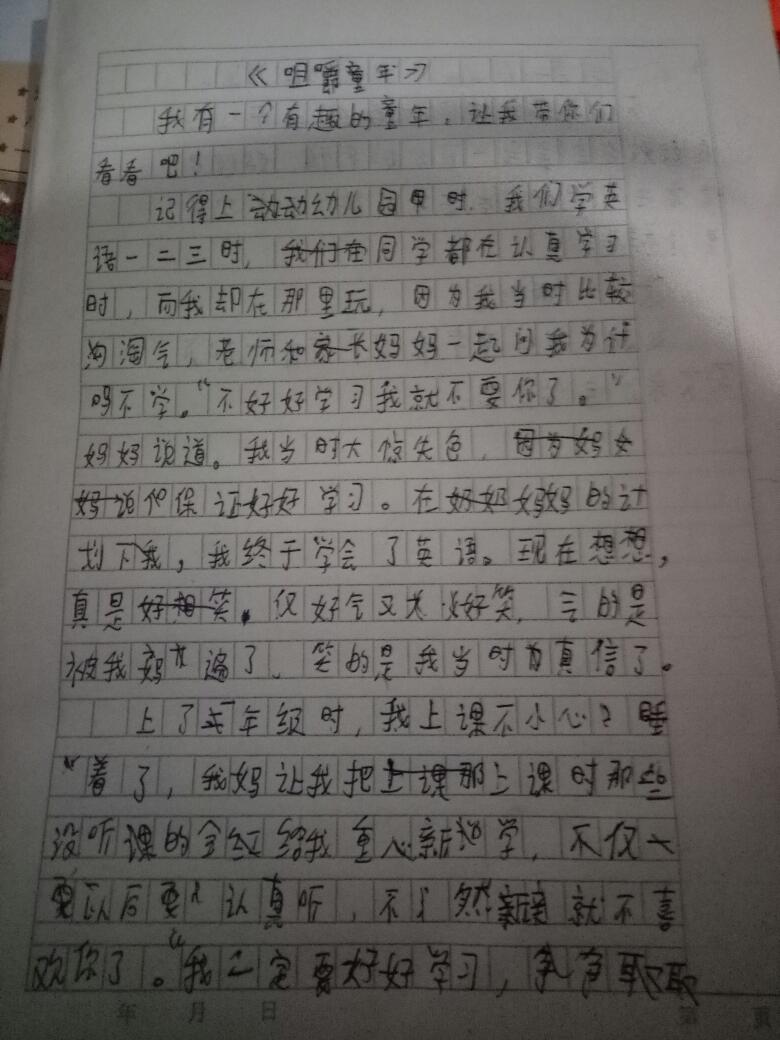 《咀嚼童年》
我有一个有趣的童年，让我带你们
看看吧！
记得上动动幼儿园甲时，我们学英
语一二三时，我们在同学都在认真学习
时，而我却在那里玩，因为我当时比较
淘气，老师和家长妈妈一起问我为什
吗不学。“不好好学习我就不要你了。”
妈妈说道。我当时大惊失色，因为妈
妈说他保证好好学习。在奶奶妈妈的计
划下我，我终于学会了英语。现在想想，
真是好想笑，仅好气又好笑，的是
被我妈骗了、笑的是我当时为真信了。
上了年级时，我上课不小心睡
“着了，我妈让我把上课那上课时那些
没听课的全给我重心新地学，不仅
要以后要认真听，不然就不喜
欢你了。“我一定要好好学习，争争取取
年 月 日 第 页